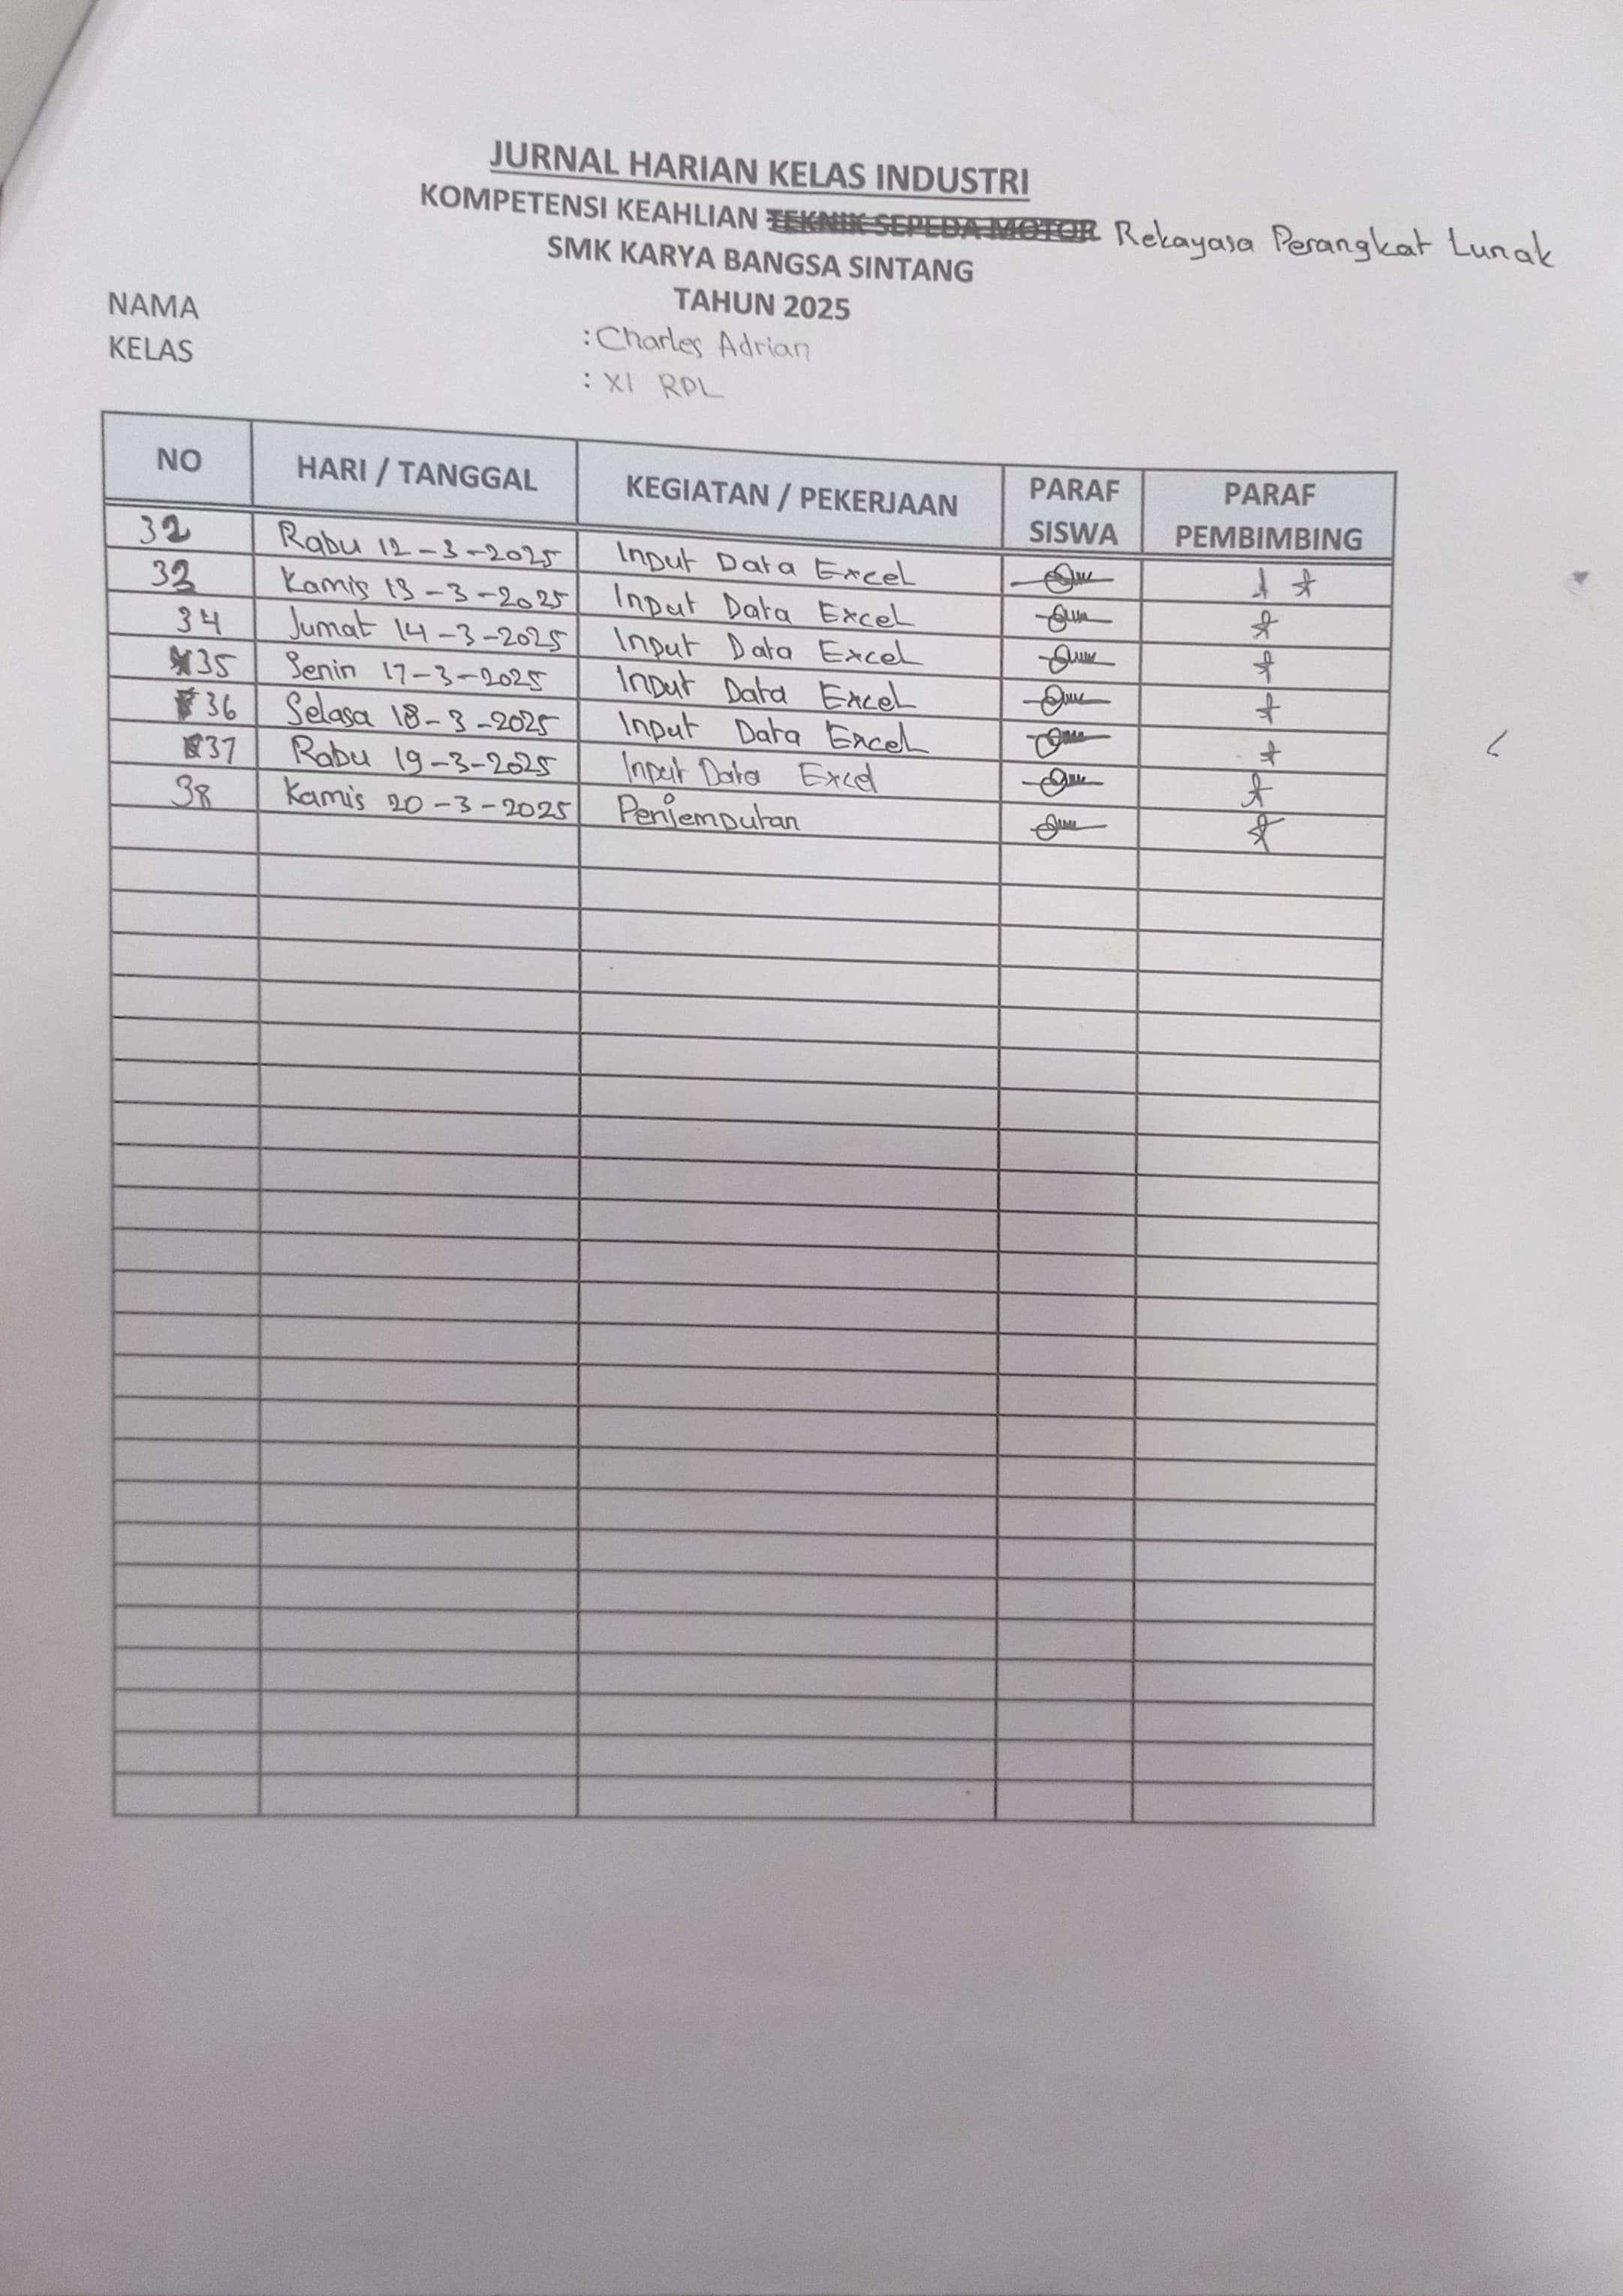 JURNAL HARIAN KELAS INDUSTRI
KOMPETENSI KEAHLIAN TEKNIK SEPEDA MOTOR Rekayasa Perangkat Lunak
SMK KARYA BANGSA SINTANG
TAHUN 2025
NAMA : Charles Adrian
KELAS : XI RPL
NO HARI / TANGGAL KEGIATAN / PEKERJAAN PARAF SISWA PARAF PEMBIMBING
32 Rabu 12-3-2025 Input Data Excel
33 Kamis 13-3-2025 Input Data Excel
34 Jumat 14-3-2025 Input Data Excel
35 Senin 17-3-2025 Input Data Excel
36 Selasa 18-3-2025 Input Data Excel
37 Rabu 19-3-2025 Input Data Excel
38 Kamis 20-3-2025 Penjemputan